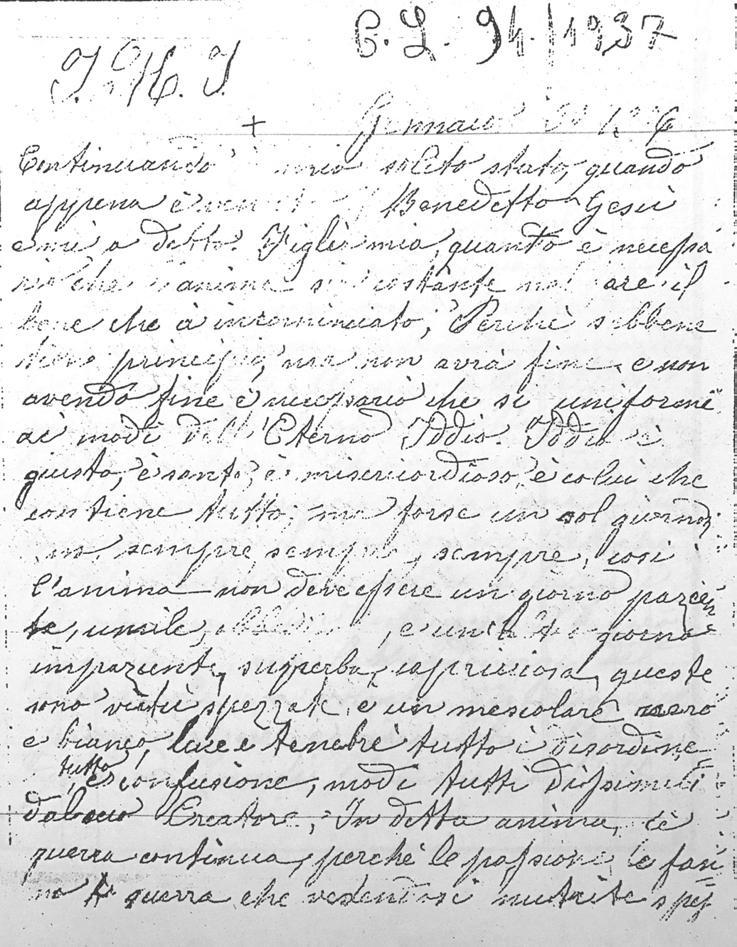 C. L. 94. / 1937
J. M. J
+ Gennaio
Continuando mio solito stato, quando
appena è Benedetto Gesù
e mi a detto. Figlia mia, quanto è necessa
che anima costante nel il
bene che à incominciato, Perchè sebbene
principio, ma non avrà fine, e non
avendo fine è necessario che si uniformi
ai modi dell'Eterno Iddio. Iddio è
giusto, è santo, è misericordioso, è colui che
contiene tutto, ma forse un sol giorno?
no, sempre, sempre, sempre, così
l'anima non deve essere un giorno pazien
te, umile, , e un giorno
impaziente, superba, capricciosa, queste
sono virtù spezzate è un mescolare nero
e bianco, luce e tenebre tutto è disordine
tutto è confusione, modi tutti dissimili
dal suo Creatore, In detta anima, c'è
guerra continua, perchè le passioni le fan
no guerra che vedendosi nutrite spes